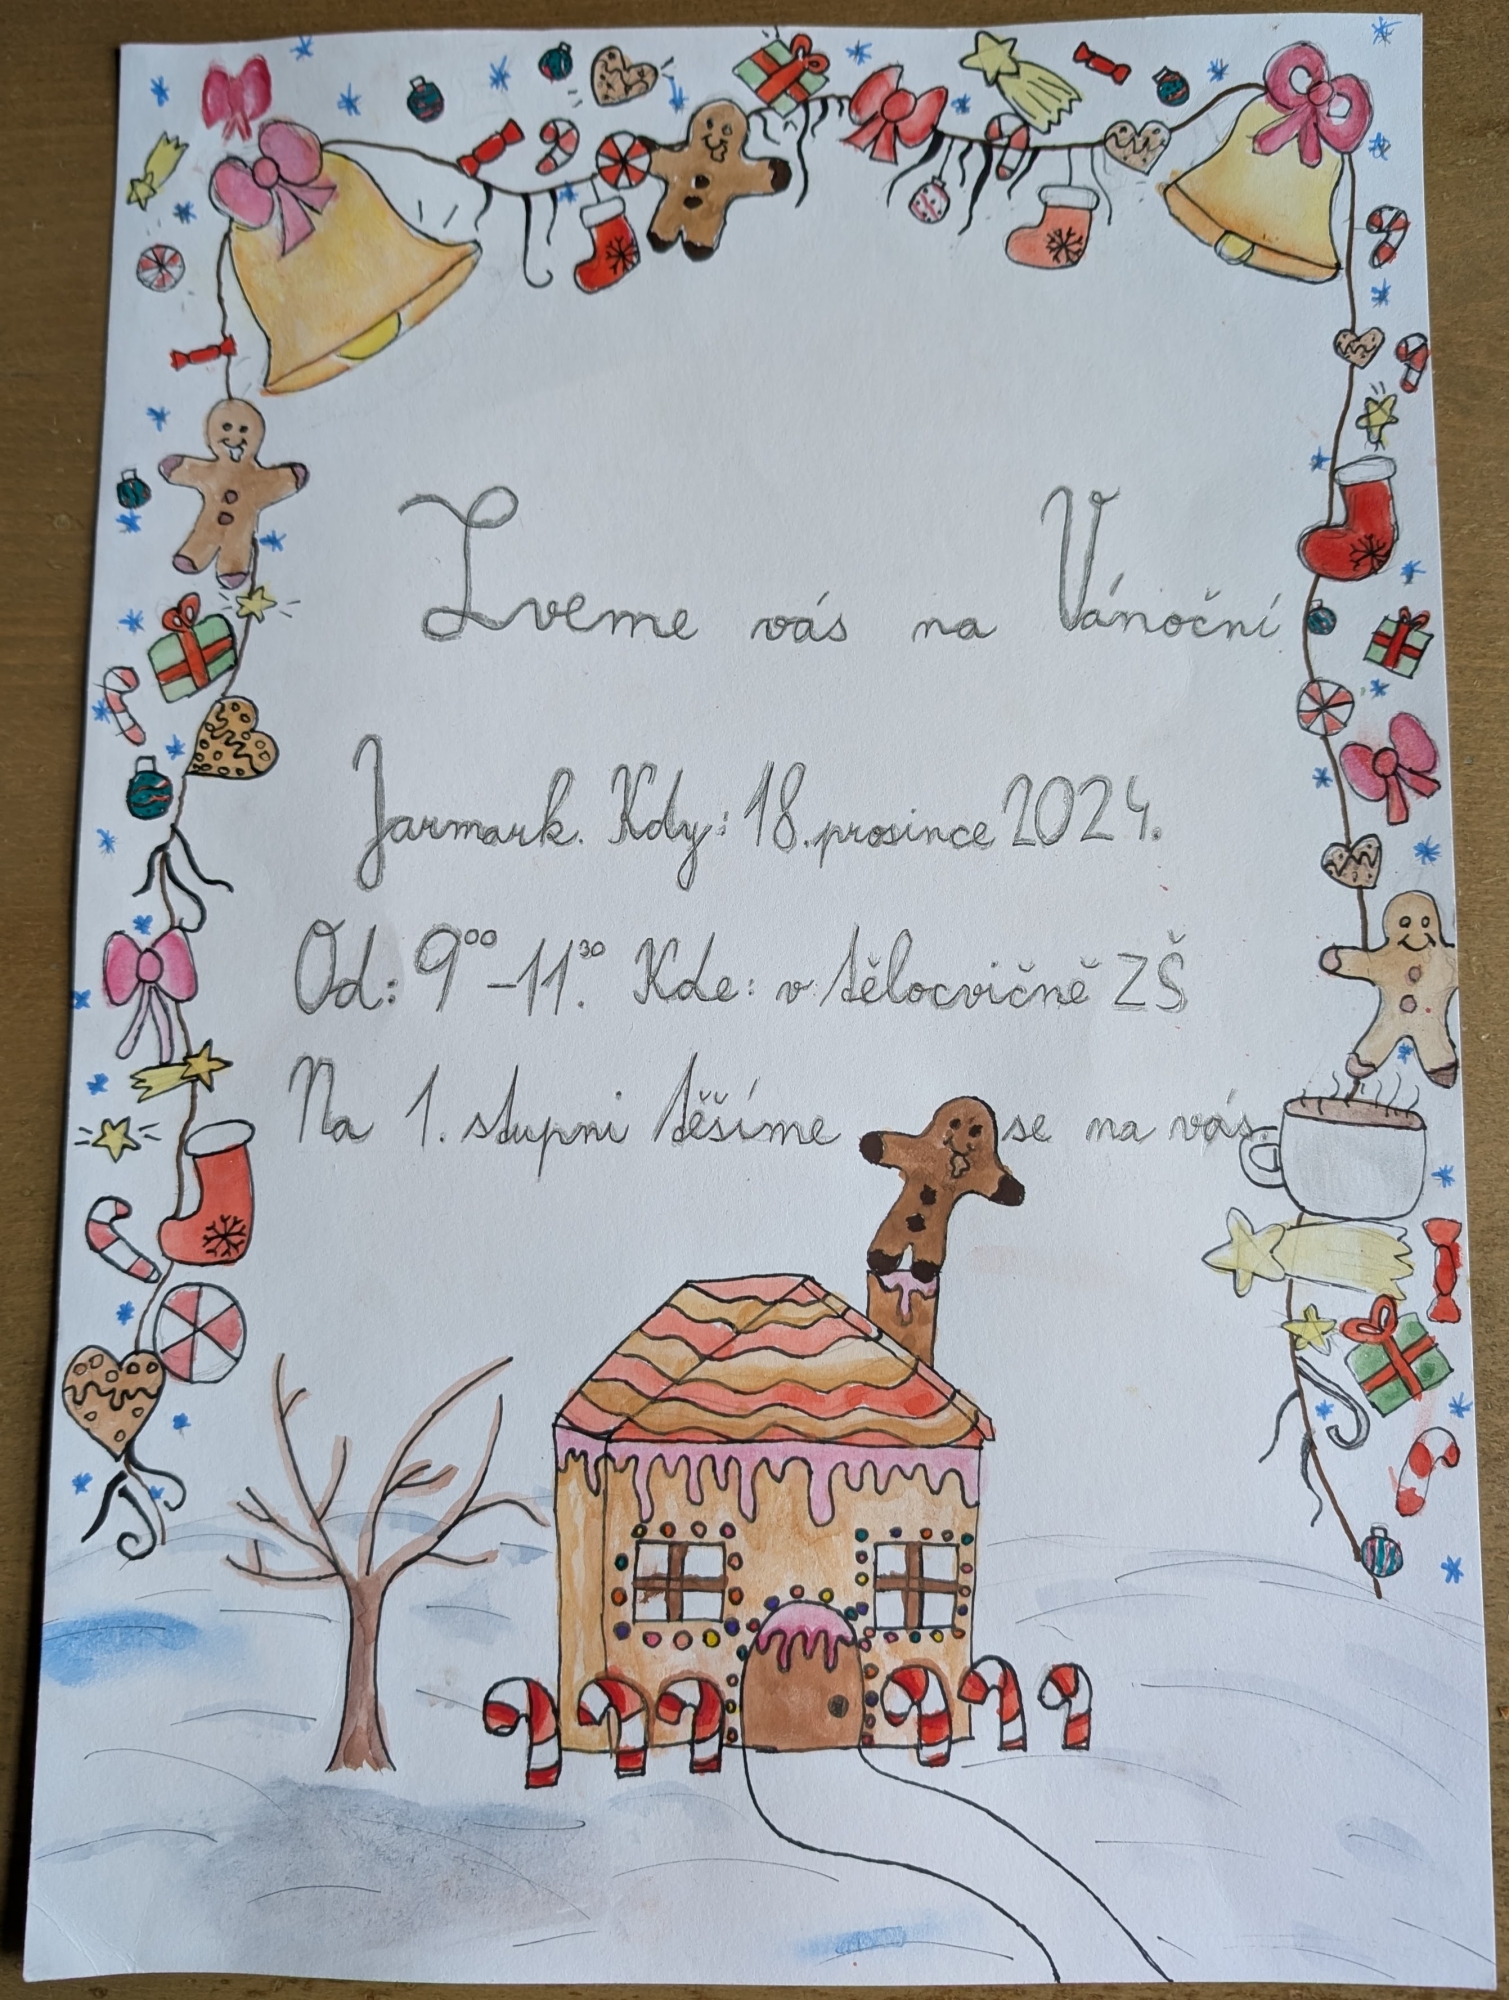 Zveme vás na Vánoční
Jarmark. Kdy: 18. prosince 2024.
Od: 9⁰⁰-11³⁰. Kde: v tělocvičně ZŠ
Na 1. stupni těšíme se na vás.